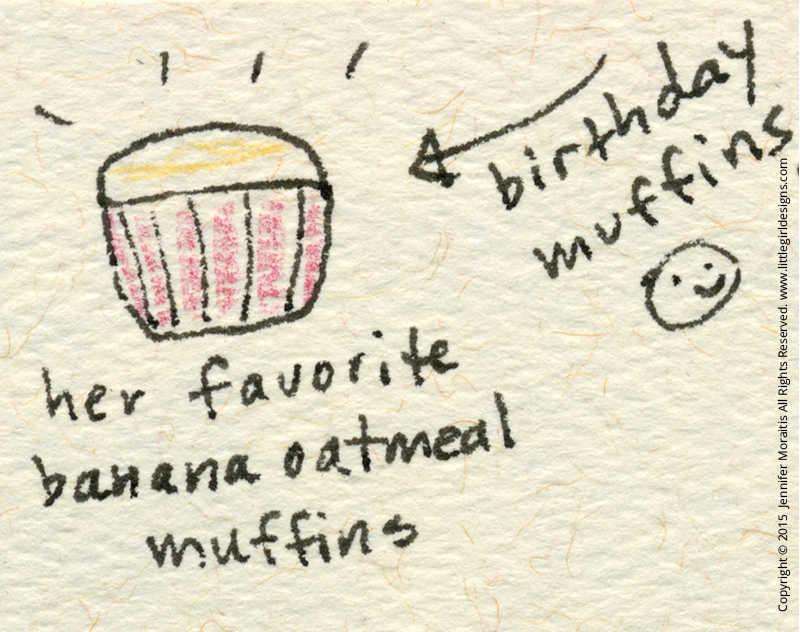 birthday
muffins
her favorite
banana oatmeal
muffins
Copyright © 2015 Jennifer Moraitis All Rights Reserved. www.littlegirldesigns.com